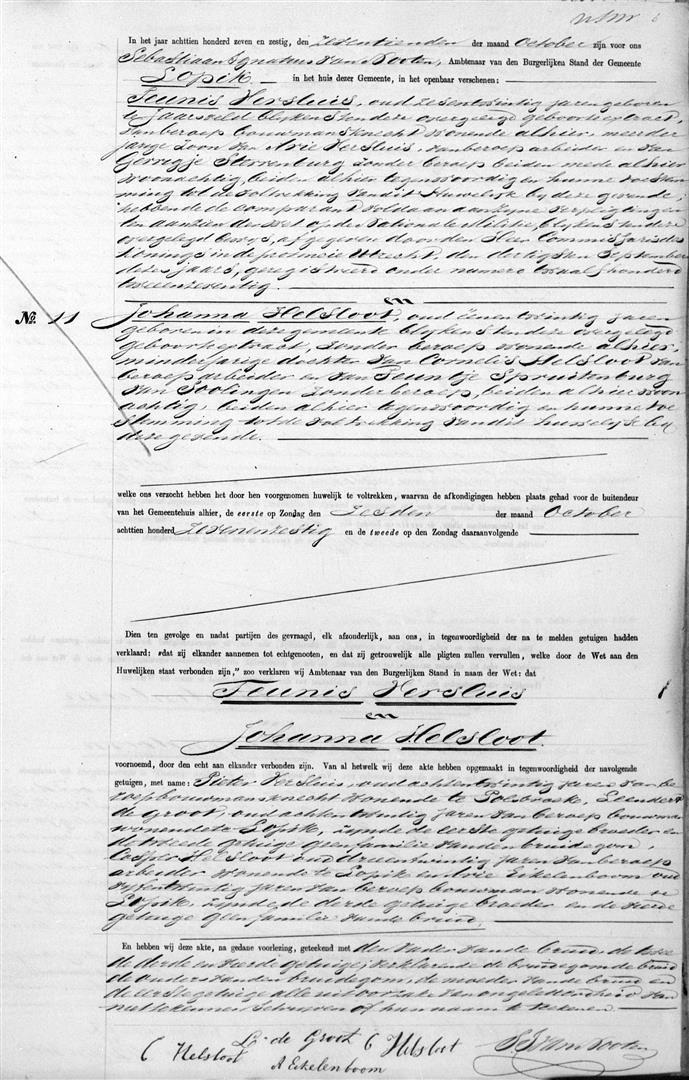 In het jaar achttien honderd zeven en zestig, den zeventienden der maand October zijn voor ons
Sebastiaan Ignatius van Nooten, Ambtenaar van den Burgerlijken Stand der Gemeente
Lopik in het huis dezer Gemeente, in het openbaar verschenen:
Teunis Versluis, oud zesentwintig jaren geboren
te Jaarsveld blijkens ten deze overgelegd geboorteextract,
van beroep bouwmansknecht wonende alhier, meerder
jarige zoon van Arie Versluis, van beroep arbeider en van
Gerrigje Storrenburg zonder beroep beiden mede alhier
woonachtig, beiden alhier tegenwoordig en hunne toestem
ming tot de voltrekking van dit Huwelijk bij deze gevende;
hebbende de comparant voldaan aan zijne verpligtingen
ten aanzien der wet op de Nationale Militie, blijkens ten deze
overgelegd bewijs, afgegeven door den Heer Commissaris des
Konings in de provincie Utrecht, den dertigsten September
dezes jaars, geregistreerd onder numero twaalfhonderd
tweeenzestig.
en
No. 11 Johanna Helsloot, oud eenentwintig jaren
geboren in deze gemeente blijkens ten deze overgelegd
geboorteextract, zonder beroep wonende alhier,
minderjarige dochter van Cornelis Helsloot van
beroep arbeider en van Teuntje Spruitenburg
van Soolingen zonder beroep, beiden alhier woon
achtig, beiden alhier tegenwoordig en hunne toe
stemming tot de voltrekking van dit huwelijk bij
deze gevende.
welke ons verzocht hebben het door hen voorgenomen huwelijk te voltrekken, waarvan de afkondigingen hebben plaats gehad voor de buitendeur
van het Gemeentehuis alhier, de eerste op Zondag den zesden der maand October
achttien honderd zevenenzestig en de tweede op den Zondag daaraanvolgende
Dien ten gevolge en nadat partijen des gevraagd, elk afzonderlijk, aan ons, in tegenwoordigheid der na te melden getuigen hadden
verklaard: »dat zij elkander aannemen tot echtgenooten, en dat zij getrouwelijk alle pligten zullen vervullen, welke door de Wet aan den
Huwelijken staat verbonden zijn,” zoo verklaren wij Ambtenaar van den Burgerlijken Stand in naam der Wet: dat
Teunis Versluis
en
Johanna Helsloot.
voornoemd, door den echt aan elkander verbonden zijn. Van al hetwelk wij deze akte hebben opgemaakt in tegenwoordigheid der navolgende
getuigen, met name: Pieter Versluis, oud achtentwintig jaren van be
roep bouwmansknecht wonende te Polsbroek, Leendert
de Groot, oud achtentwintig jaren van beroep bouwman
wonende te Lopik, zijnde de eerste getuige broeder en
de tweede getuige geen familie van den bruidegom,
Casper Helsloot oud drieentwintig jaren van beroep
arbeider wonende te Lopik en Arie Eikelenboom oud
vijfentwintig jaren van beroep bouwman wonende te
Lopik, zijnde de derde getuige broeder en de vierde
getuige geen familie van de bruid,
En hebben wij deze akte, na gedane voorlezing, geteekend met den vader van de bruid, de twee
de, derde en vierde getuige; verklarende de bruidegom de bruid
de ouders van den bruidegom, de moeder van de bruid en
de eerste getuige alle uit oorzake van ongeletterdheid van
niet te kunnen schrijven of hun naam te teekenen
C Helsloot L. de Groot C Helsloot
A Eikelenboom
S I van Nooten